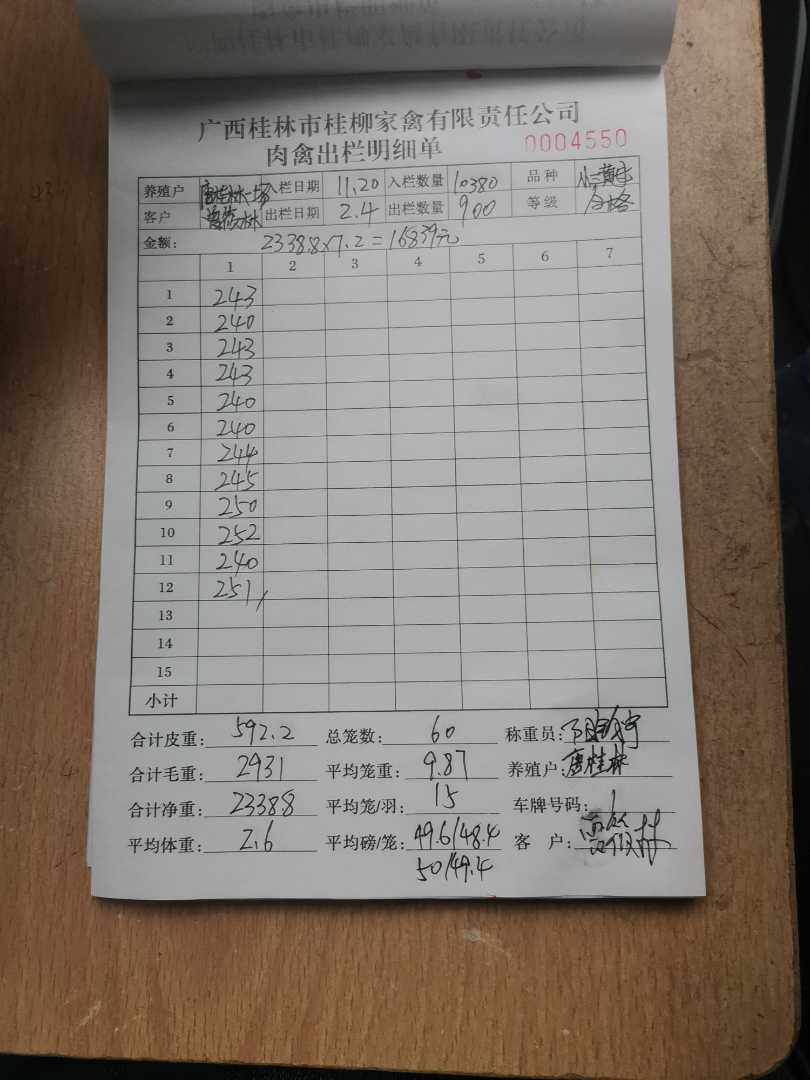 广西桂林市桂柳家禽有限责任公司
肉禽出栏明细单 0004550
养殖户 唐桂林一场 入栏日期 11.20 入栏数量 10380 品种
客户 出栏日期 2.4 出栏数量 900 等级 合格
金额: 2338.8×7.2=16839元
1 2 3 4 5 6 7
1 243
2 240
3 243
4 243
5 240
6 240
7 244
8 245
9 250
10 252
11 240
12 251
13
14
15
小计
合计皮重: 592.2 总笼数: 60 称重员:
合计毛重: 2931 平均笼重: 9.87 养殖户: 唐桂林
合计净重: 2338.8 平均笼/羽: 15 车牌号码:
平均体重: 2.6 平均磅/笼: 49.6/48.4 客 户:
50/49.4